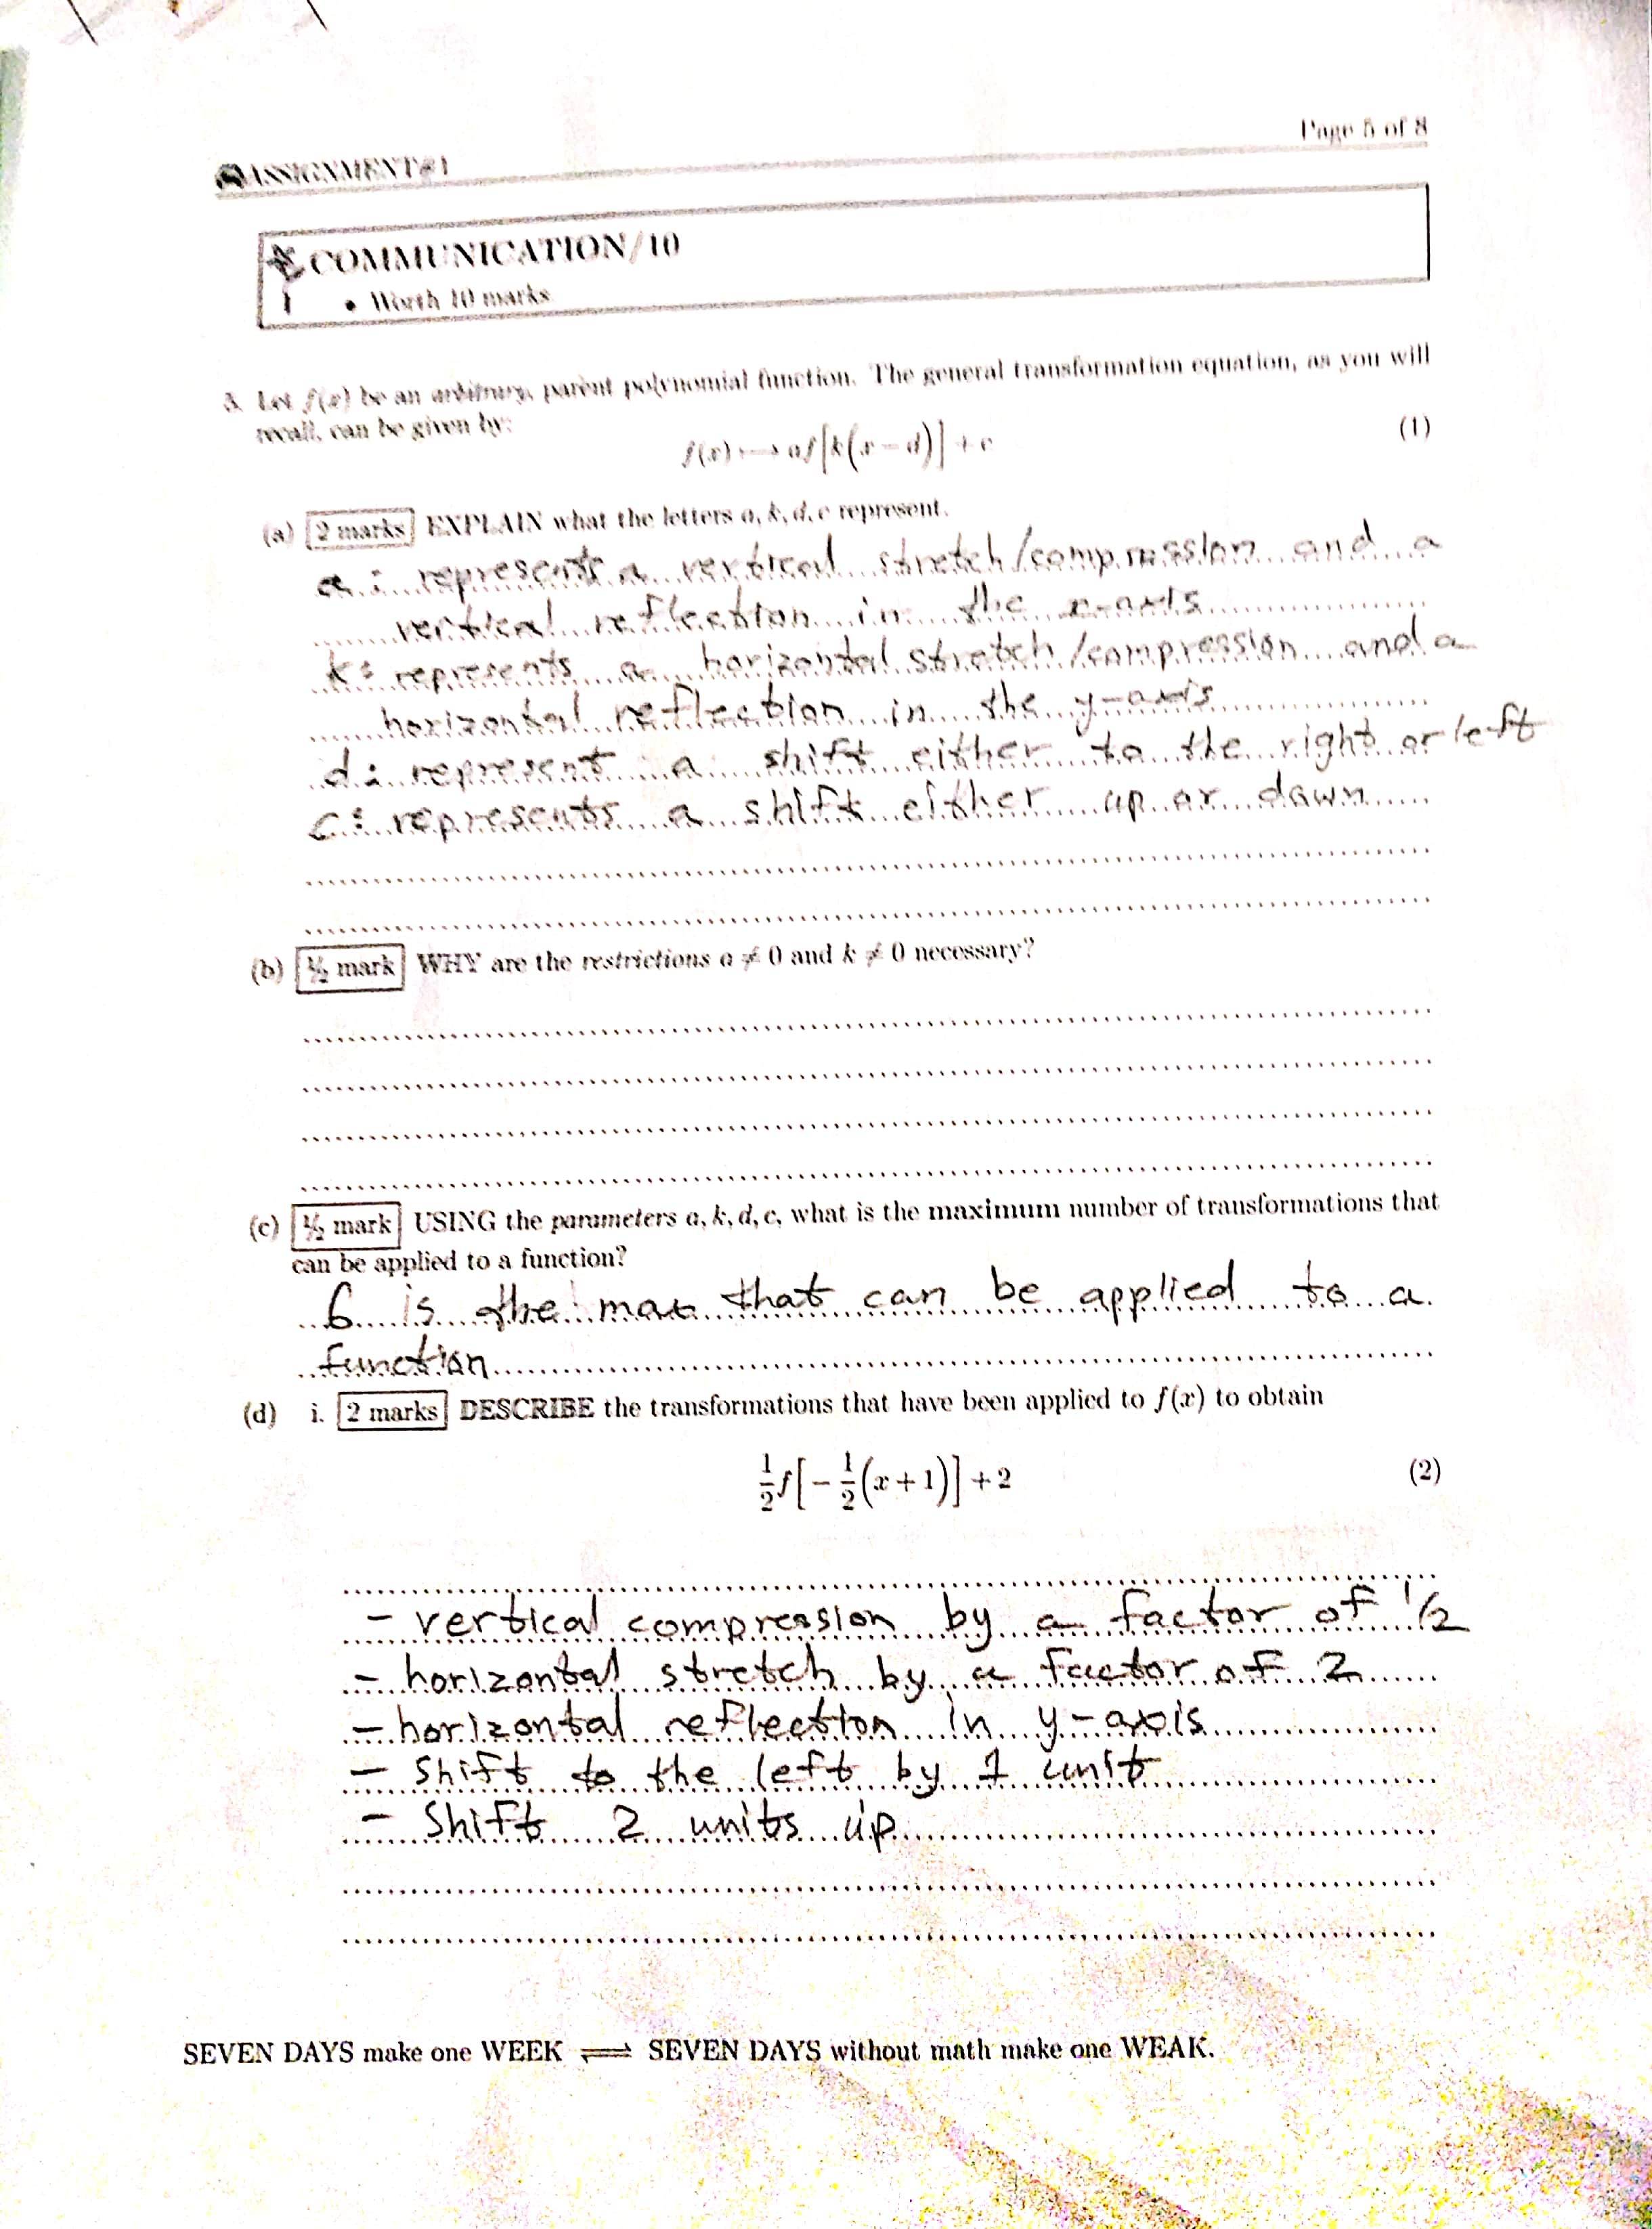 Page 5 of 8
ASSIGNMENT#1
COMMUNICATION/10
1 • Worth 10 marks
3. Let f(x) be an arbitrary, parent polynomial function. The general transformation equation, as you will
recall, can be given by:
f(x) ⟼ af[k(x − d)] + c (1)
(a) 2 marks EXPLAIN what the letters a, k, d, c represent.
a : represents a vertical stretch/compression and a
vertical reflection in the x-axis
k : represents a horizontal stretch/compression and a
horizontal reflection in the y-axis
d : represent a shift either to the right or left
c : represents a shift either up or down
(b) ½ mark WHY are the restrictions a ≠ 0 and k ≠ 0 necessary?
(c) ½ mark USING the parameters a, k, d, c, what is the maximum number of transformations that
can be applied to a function?
6 is the max that can be applied to a
function
(d) i. 2 marks DESCRIBE the transformations that have been applied to f(x) to obtain
1/2 f[−1/2(x + 1)] + 2 (2)
- vertical compression by a factor of 1/2
- horizontal stretch by a factor of 2
- horizontal reflection in y-axis
- Shift to the left by 1 unit
- Shift 2 units up
SEVEN DAYS make one WEEK ⇌ SEVEN DAYS without math make one WEAK.